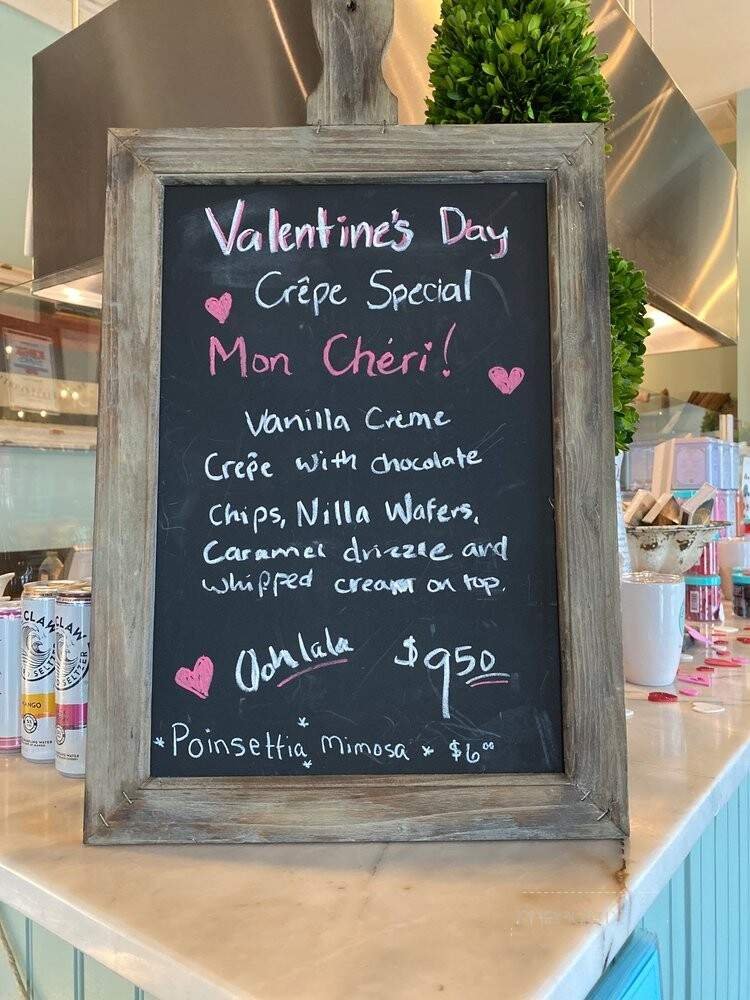 Valentine's Day
Crêpe Special
Mon Chéri!
Vanilla Crème
Crêpe with chocolate
Chips, Nilla Wafers,
Caramel drizzle and
whipped cream on top.
Ooh lala $9.50
*Poinsettia Mimosa* $6.00
CLAW
SELTZER
MANGO
CLAW
SELTZER